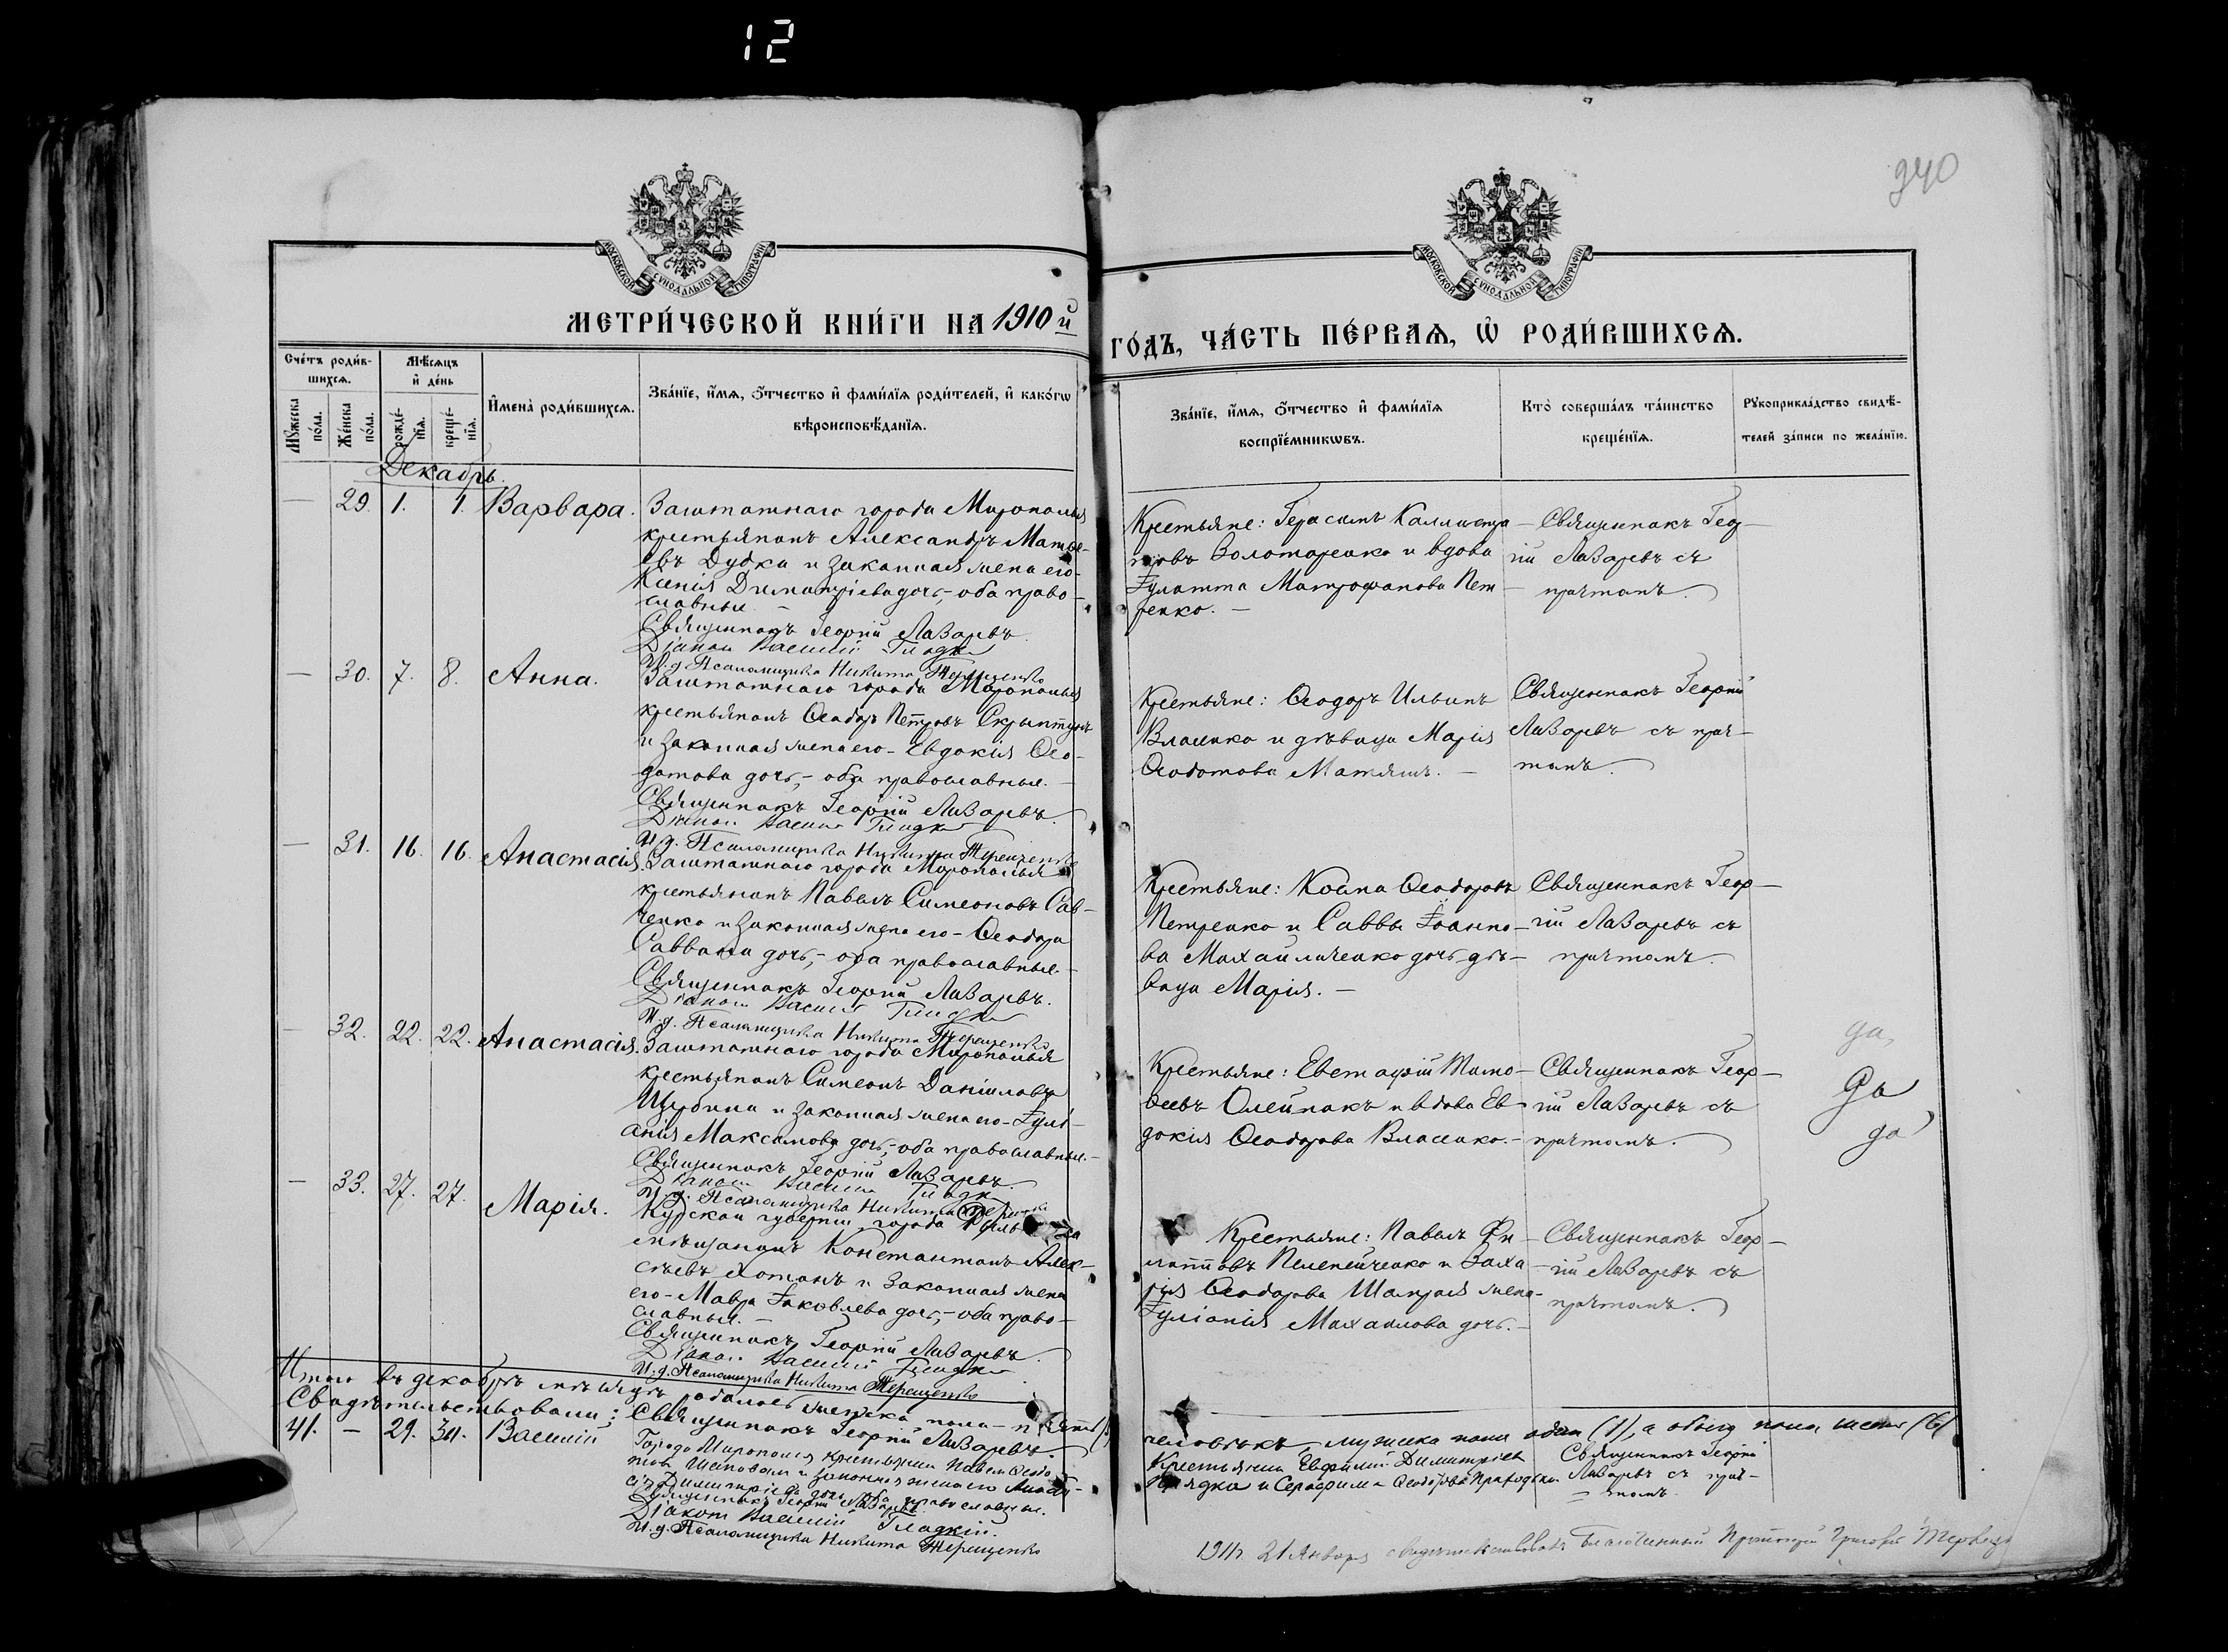 12
940
МОСКОВСКОЙ СѴНОДАЛЬНОЙ ТИПОГРАФІИ
МОСКОВСКОЙ СѴНОДАЛЬНОЙ ТИПОГРАФІИ
МЕТРИ́ЧЕСКОЙ КНИ́ГИ НА 1910 й
ГО́ДЪ, ЧА́СТЬ ПЕ́РВАѦ, Ѡ҆ РОДИ́ВШИХСѦ.
Сче́тъ роди́в-
шихсѧ.
Мꙋ́жеска по́ла.
Же́нска по́ла.
Мѣ́сѧцъ
и҆ де́нь
рожде́-
нїѧ.
креще́-
нїѧ.
И҆мена̀ роди́вшихсѧ.
Зва́нїе, и҆́мѧ, ѻ҆́тчество и҆ фами́лїѧ роди́телей, и҆ како́гѡ
вѣроисповѣ́данїѧ.
Зва́нїе, и҆́мѧ, ѻ҆́тчество и҆ фами́лїѧ
воспрїе́мникѡвъ.
Кто̀ соверша́лъ та́инство
креще́нїѧ.
Рꙋкоприкла́дство свидѣ́-
телей за́писи по жела́нїю.
Декабрь.
— 29. 1. 1. Варвара.
Заштатнаго города Мирополья
крестьянинъ Александръ Матѳе-
евъ Дудка и законная жена его-
Ксенія Димитріева дочь,- оба право-
славные. —
Священникъ Георгій Лазаревъ.
Діаконъ Василій Гладкій
И. д. Псаломщика Никита Терещенко
Крестьяне: Герасимъ Каллистра-
товъ Золотаренко и вдова
Іулитта Митрофанова Пет-
ренко. —
Священникъ Геор-
гій Лазаревъ съ
причтомъ.
— 30. 7. 8. Анна.
Заштатнаго города Мирополья
крестьянинъ Ѳеодоръ Петровъ Скрыптунъ
и законная жена его- Евдокія Ѳео-
дотова дочь,- оба православные. —
Священникъ Георгій Лазаревъ.
Діаконъ Василій Гладкій
И. д. Псаломщика Никита Терещенко
Крестьяне: Ѳеодоръ Ильинъ
Власенко и дѣвица Марія
Ѳеодотова Матяшъ. —
Священникъ Георгій
Лазаревъ съ прич-
томъ.
— 31. 16. 16. Анастасія.
Заштатнаго города Мирополья
крестьянинъ Павелъ Симеоновъ Сав-
ченко и законная жена его- Ѳеодора
Саввина дочь,- оба православные. —
Священникъ Георгій Лазаревъ.
Діаконъ Василій Гладкій
И. д. Псаломщика Никита Терещенко
Крестьяне: Косма Ѳеодоровъ
Петренко и Саввы Іоанно-
ва Михайличенко дочь дѣ-
вица Марія. —
Священникъ Геор-
гій Лазаревъ съ
причтомъ.
— 32. 22. 22. Анастасія.
Заштатнаго города Мирополья
крестьянинъ Симеонъ Даніиловъ
и законная жена его- Іулі-
анія Максимова дочь,- оба православные. —
Священникъ Георгій Лазаревъ.
Діаконъ Василій Гладкій
И. д. Псаломщика Никита
Крестьяне: Евстафій Тимо-
ѳеевъ Олейникъ и вдова Ев-
докія Ѳеодорова Власенко. —
Священникъ Геор-
гій Лазаревъ съ
причтомъ.
да,
Да
да
— 33. 27. 27. Марія.
Курской губерніи, города
мѣщанинъ Константинъ Алек-
сѣевъ и законная жена
его- Мавра Іаковлева дочь,- оба право-
славные. —
Священникъ Георгій Лазаревъ.
Діаконъ Василій Гладкій
И. д. Псаломщика Никита Терещенко
Крестьяне: Павелъ Фи-
липповъ Пелепейченко и Заха-
рія Ѳеодорова жена-
Іуліанія Михаилова дочь. —
Священникъ Геор-
гій Лазаревъ съ
причтомъ.
Итого въ декабрѣ мѣсяцѣ родилось женска пола — пять (5)
человѣкъ, мужска пола одинъ (1), а обоего пола шесть (6)
Свидѣтельствовали: Священникъ Георгій Лазаревъ
41. — 29. 30. Василій
Города Мирополья крестьянинъ Павелъ Ѳеодо-
товъ и законная жена его
Димитріева дочь, оба православные.
Священникъ Георгій Лазаревъ
Діаконъ Василій Гладкій.
И. д. Псаломщика Никита Терещенко
Крестьяне Евфимій Димитріевъ
и Серафима Ѳеодорова Приходько
Священникъ Георгій
Лазаревъ съ прич-
томъ.
1911 г. 21 Января свидѣтельствовалъ Благочинный Протоіерей Григорій